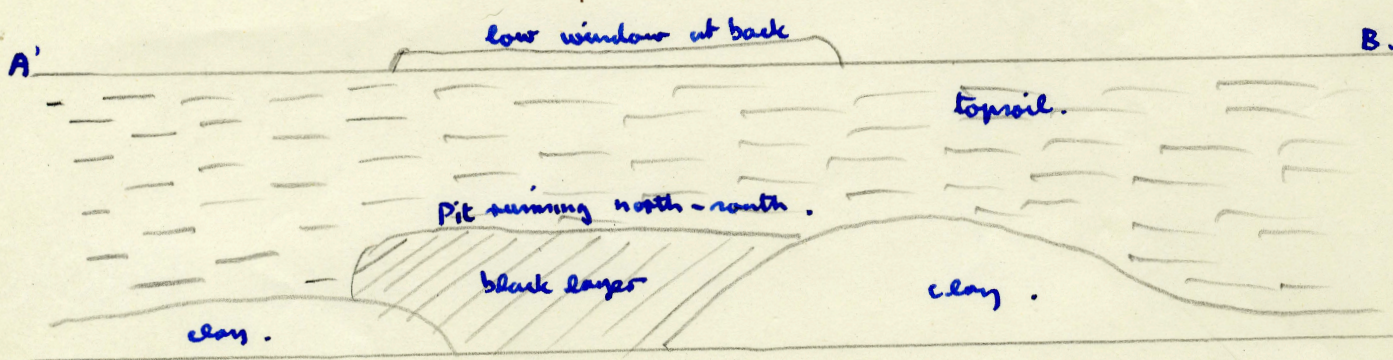 low window at back
A' B.
topsoil.
Pit running north-south.
black layer
clay.
clay.